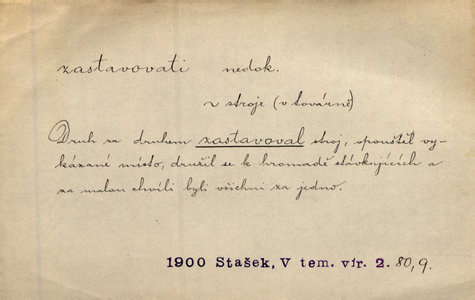 zastavovati nedok.
~ stroje (v továrně)
Druh za druhem zastavoval stroj, opouštěl vy-
kázané místo, družil se k hromadě stávkujících a
za malou chvíli byli všichni za jedno.
1900 Stašek, V tem. vír. 2. 80,9.